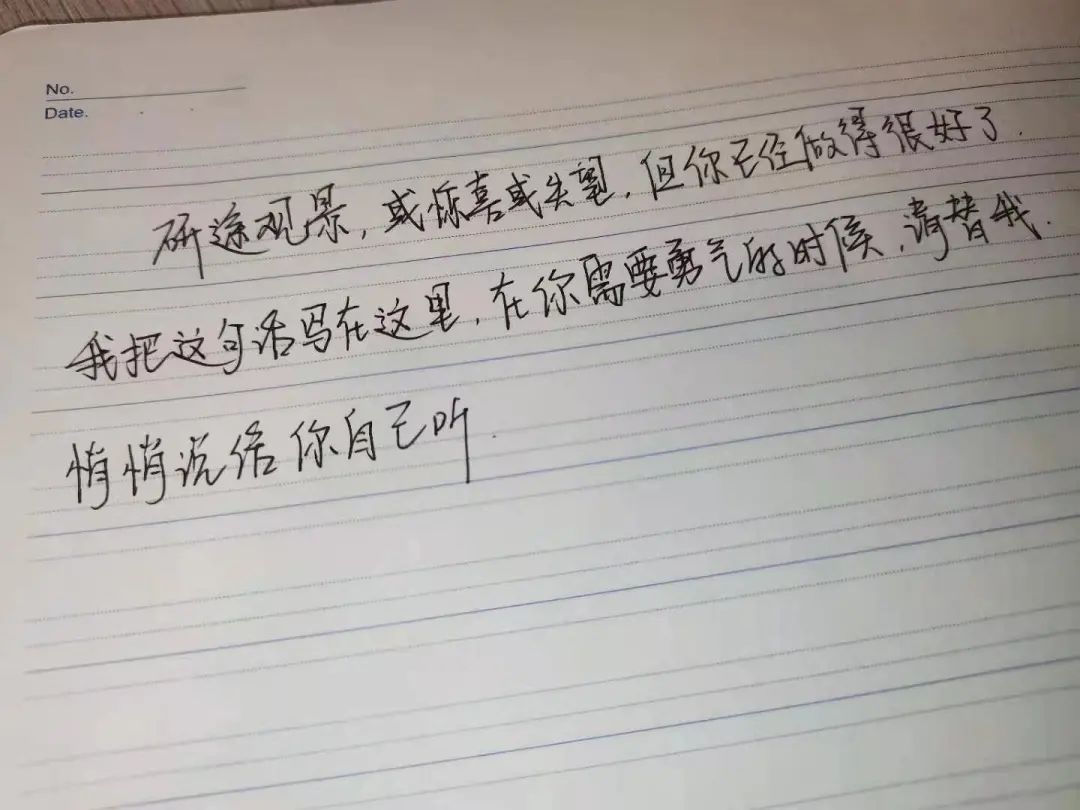 No.
Date.
研途观景,或惊喜或失望,但你已经做得很好了.
我把这句话写在这里,在你需要勇气的时候,请替我.
悄悄说给你自己听.